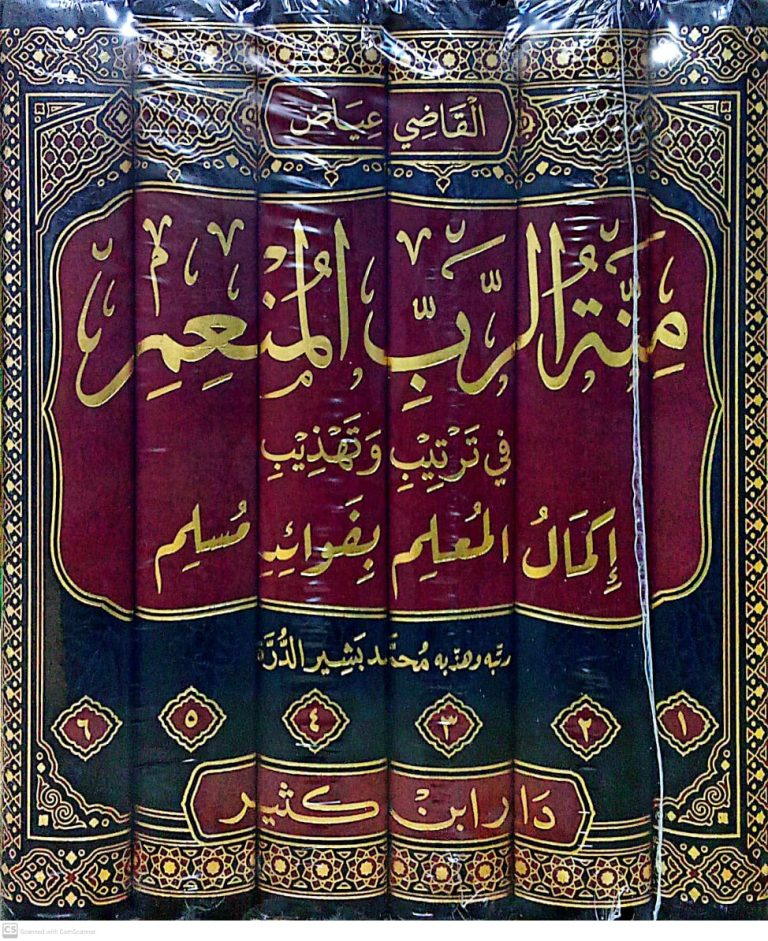 القَاضِي عِيَاض
مِنَّةُ الرَّبِّ المُنْعِمِ
فِي تَرْتِيْبِ وَتَهْذِيْبِ
إِكمَالُ المُعْلِمِ بِفَوَائِدِ مُسْلِمِ
رتّبه وهذّبه مُحَمَّد بَشِير الدُّرَّة
١ ٢ ٣ ٤ ٥ ٦
دَار ابْن كَثير
CS Scanned with CamScanner